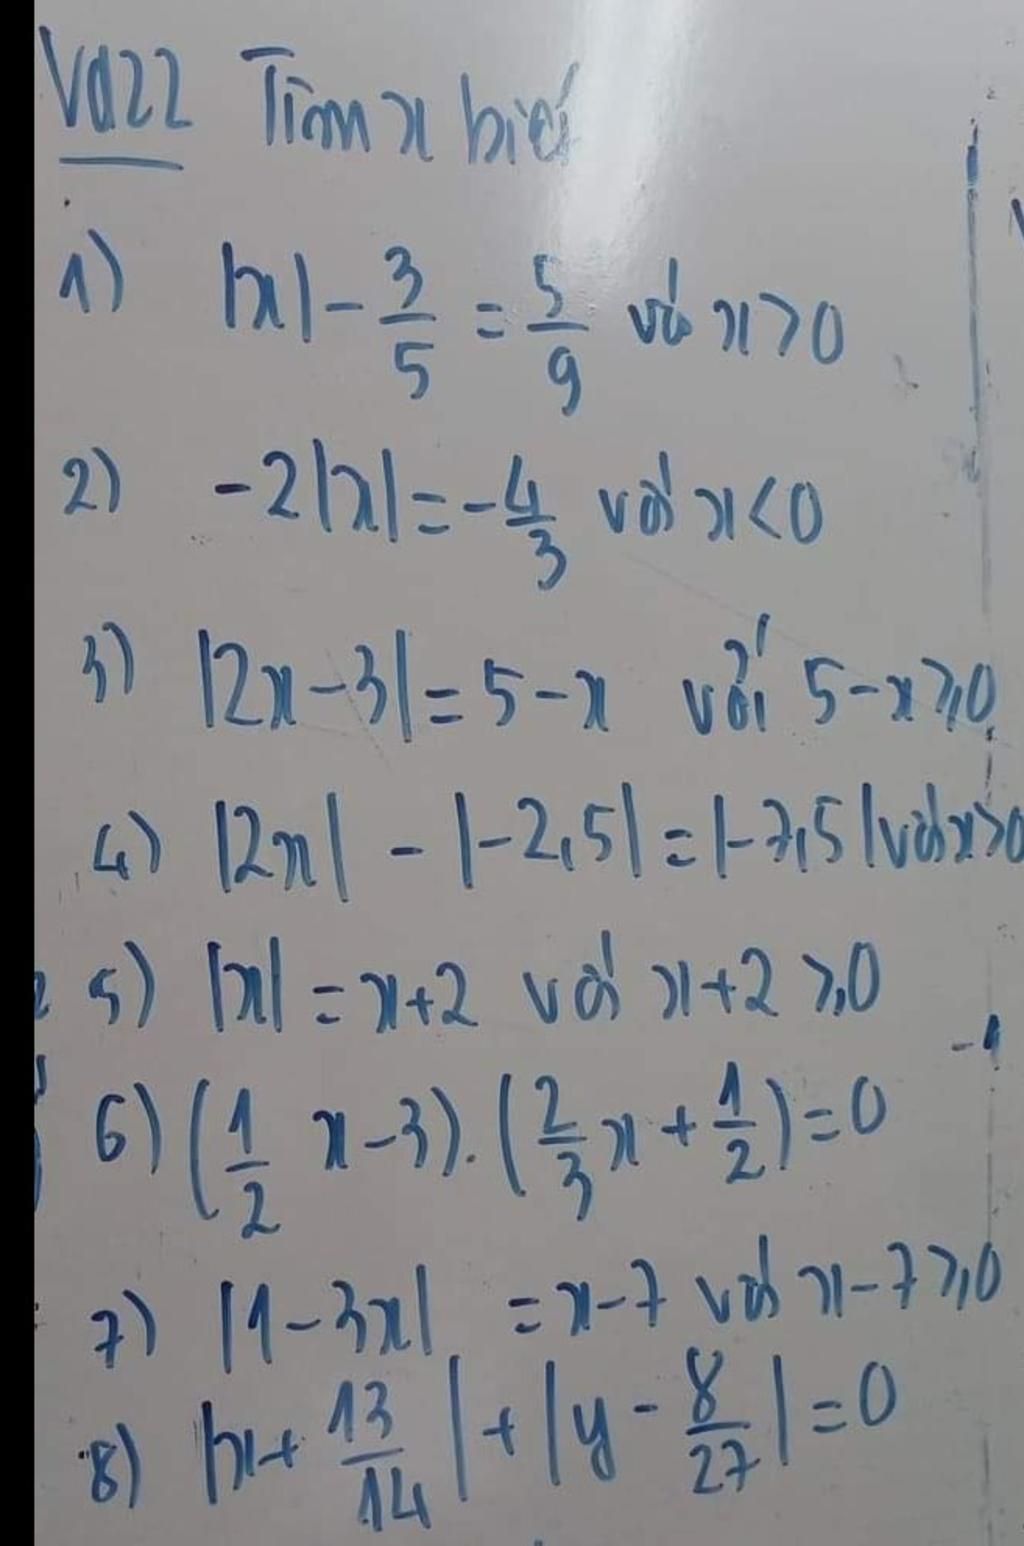 Vd22 Tìm x biết
1) |x| - 3/5 = 5/9 với x > 0
2) -2|x| = -4/3 với x < 0
3) |2x - 3| = 5 - x với 5 - x ≥ 0
4) |2x| - |-2,5| = |-7,5| với x > 0
5) |x| = x + 2 với x + 2 ≥ 0
6) (1/2 x - 3) . (2/3 x + 1/2) = 0
7) |1 - 3x| = x - 7 với x - 7 ≥ 0
8) |x + 13/14| + |y - 8/27| = 0